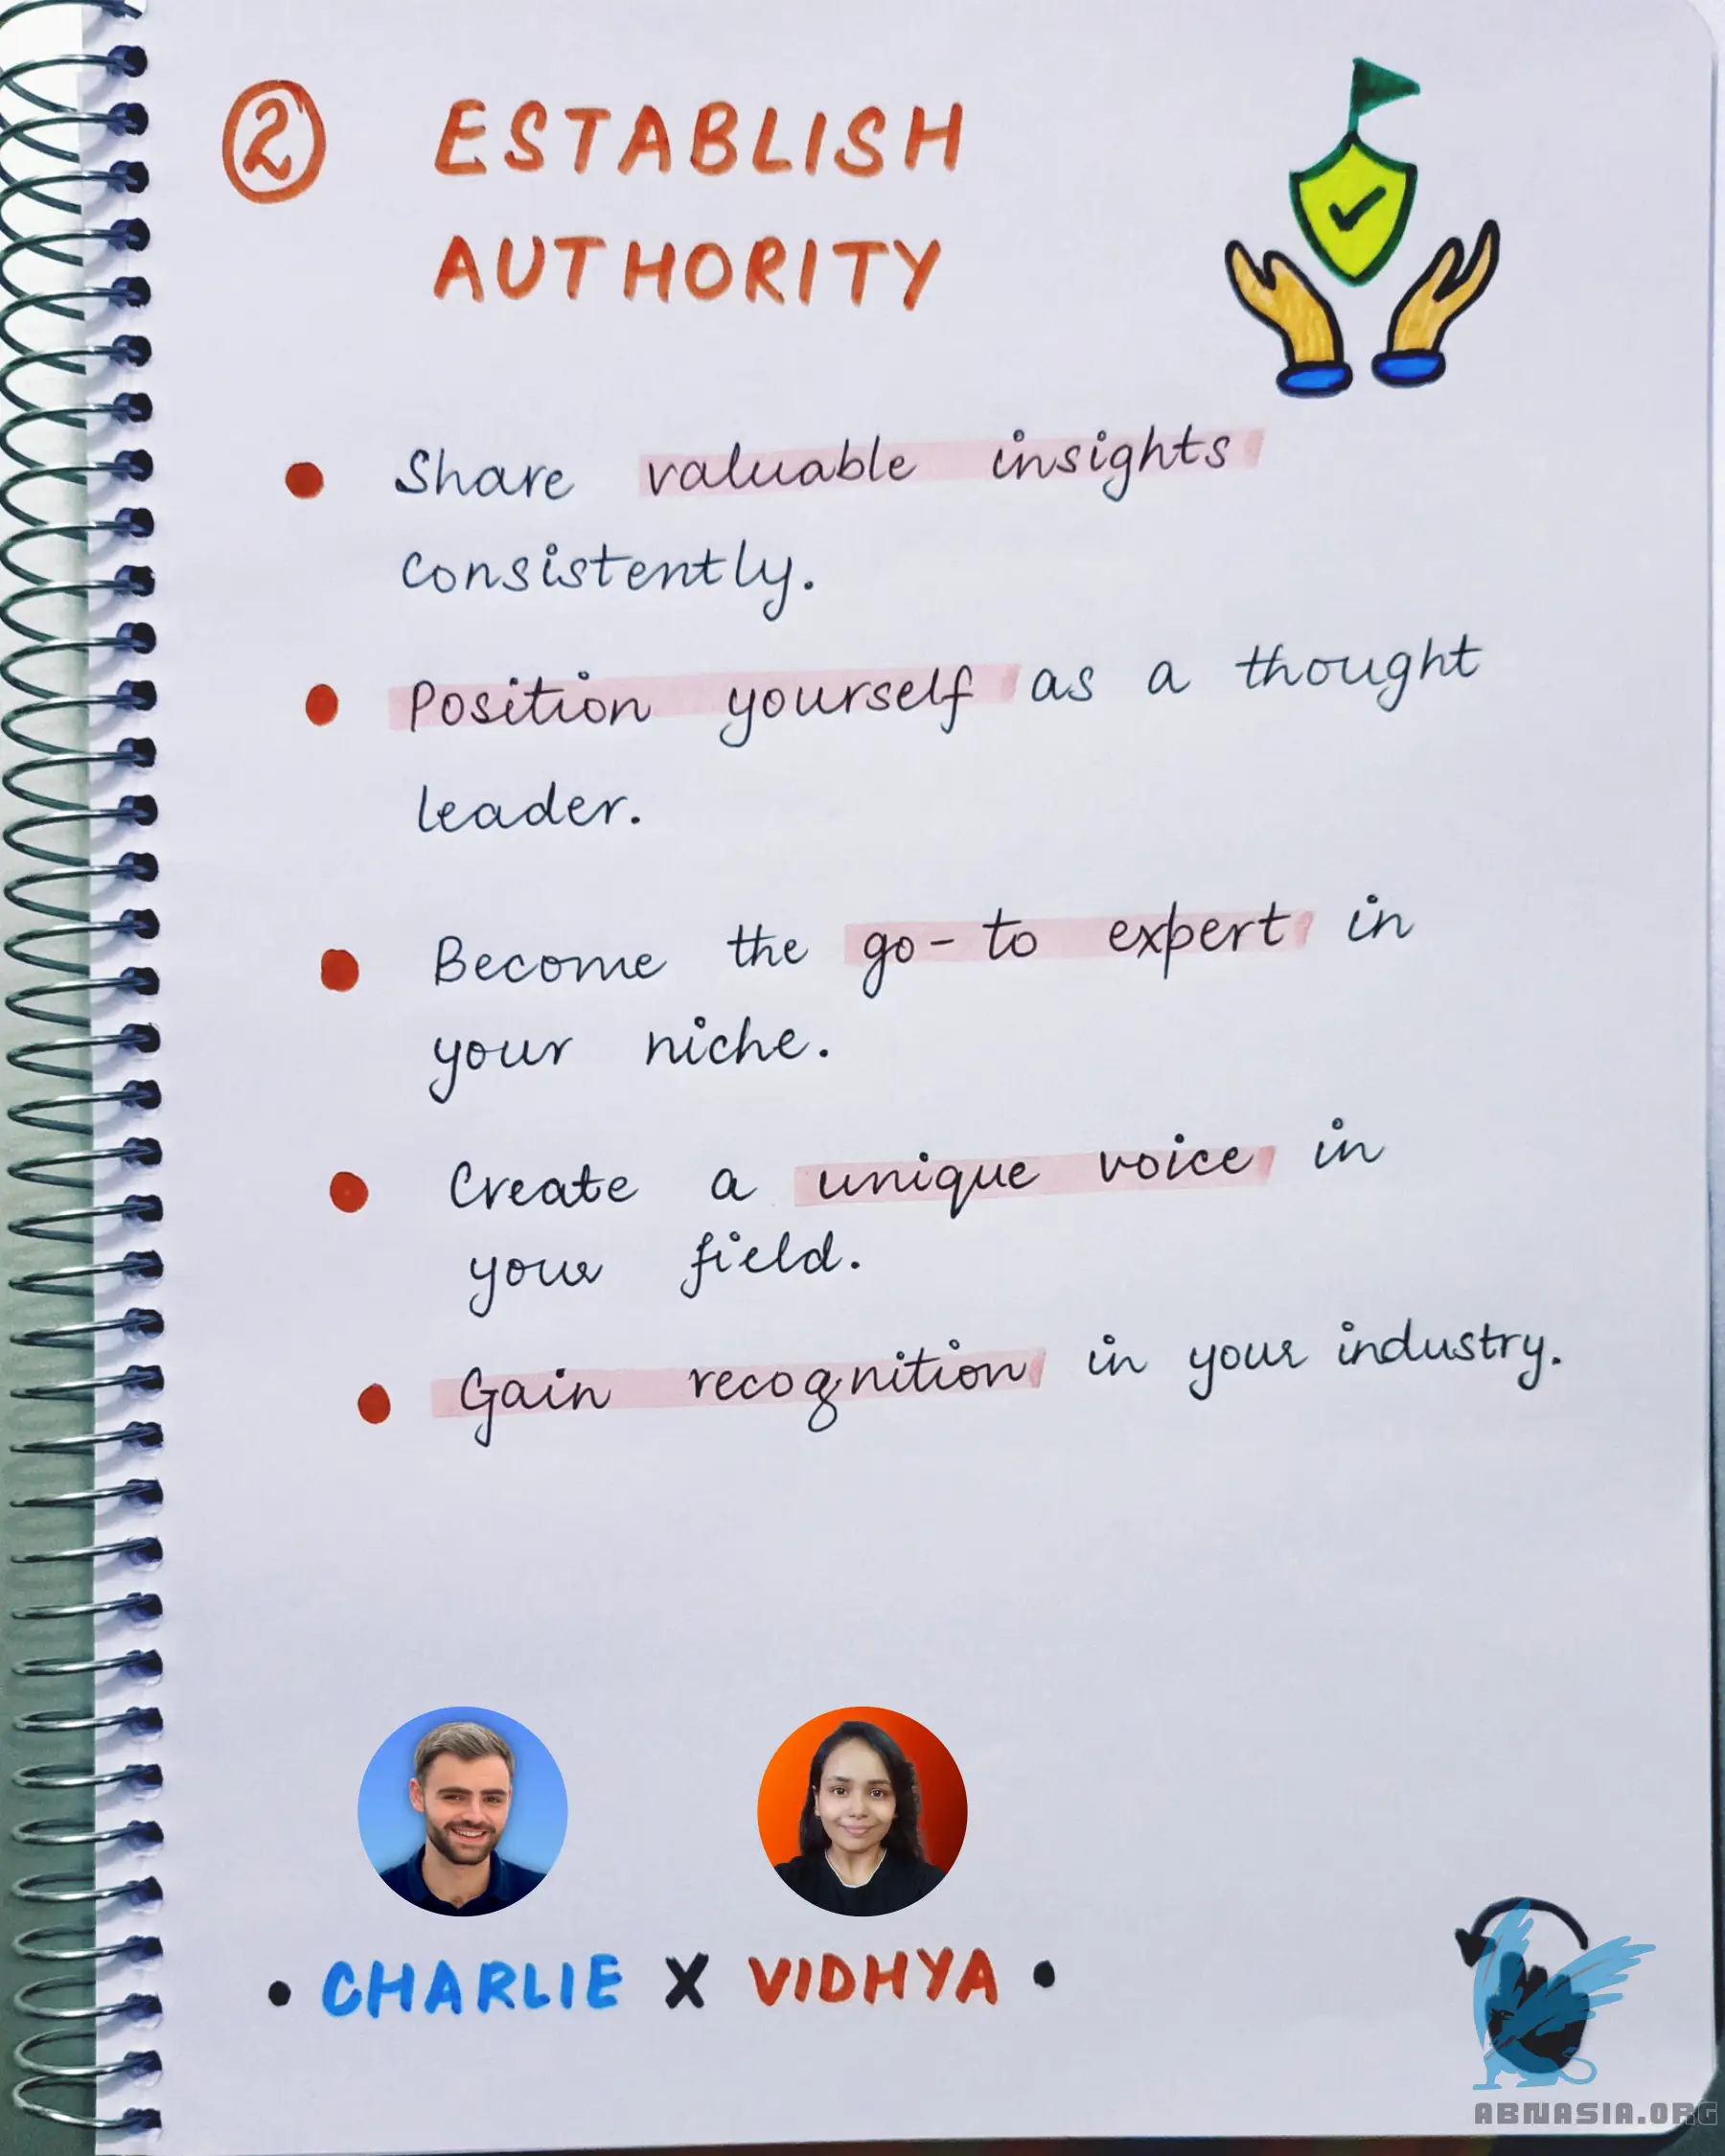 2 ESTABLISH
AUTHORITY
• Share valuable insights
consistently.
• Position yourself as a thought
leader.
• Become the go-to expert in
your niche.
• Create a unique voice in
your field.
• Gain recognition in your industry.
• CHARLIE X VIDHYA •
ABNASIA.ORG